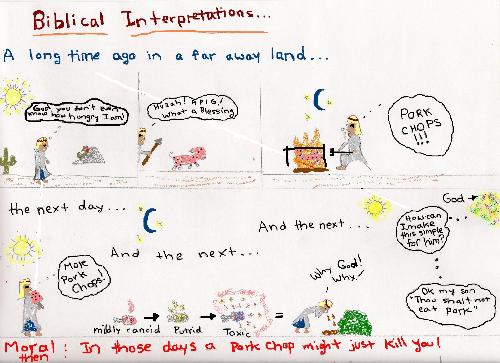 Biblical Interpretations...
A long time ago in a far away land...
God you don't even
know how hungry I am!
Huzah! A PIG!
What a Blessing
PORK
CHOPS
!!!
the next day...
More
Pork
Chops!
And the next...
mildly rancid
Putrid
Toxic
=
And the next...
Why God!
Why..
God
How can
I make
this simple
for him?
Ok my son
"Thou shalt not
eat Pork"
Moral: In those days a Pork Chop might just kill you!
then